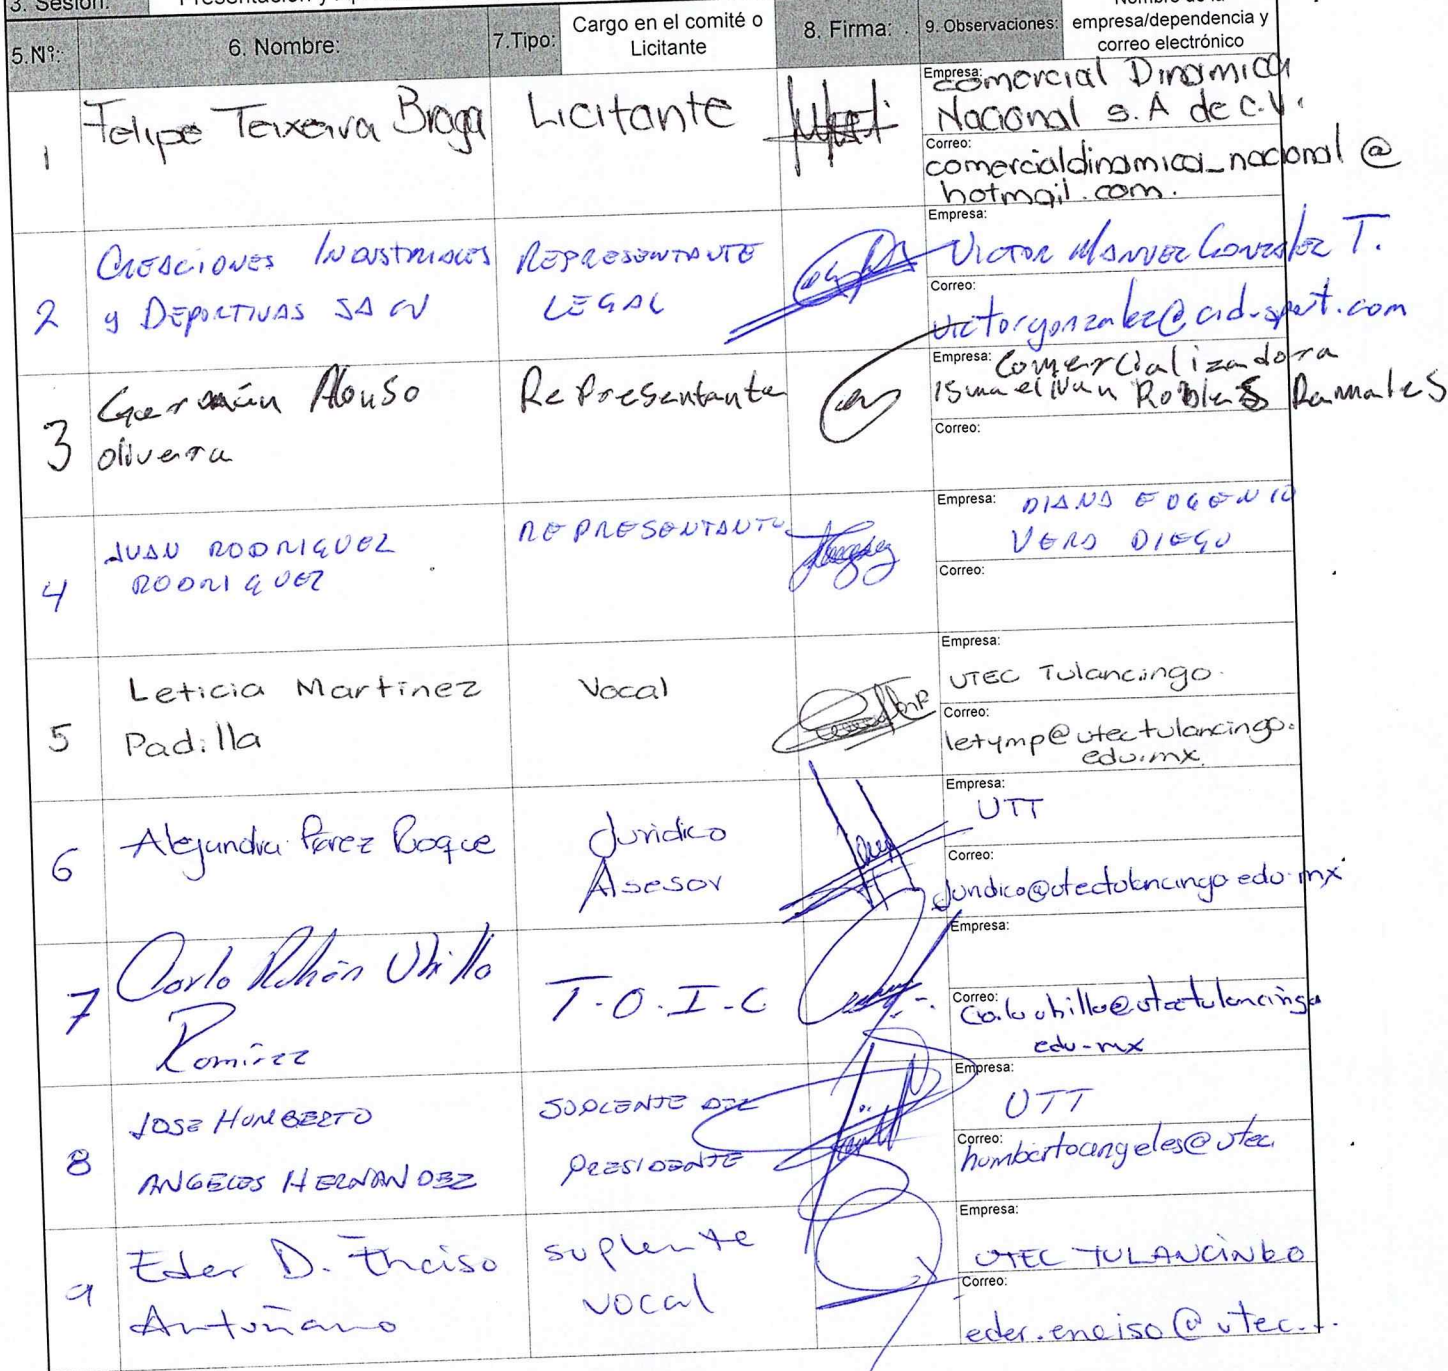 3. Sesión:
Nombre de la
5.Nº:
6. Nombre:
7.Tipo:
Cargo en el comité o
Licitante
8. Firma:
9. Observaciones:
empresa/dependencia y
correo electrónico
1
Felipe Teixeira Braga
Licitante
Empresa: Comercial Dinamica
Nacional S.A de C.V.
Correo:
comercialdinamica_nacional@
hotmail.com.
2
CREACIONES INDUSTRIALES
y DEPORTIVAS SA CV
REPRESENTANTE
LEGAL
Empresa:
VICTOR MANUEL GONZALEZ T.
Correo:
victorgonzalez@cid-sport.com
3
Germán Alonso
oliveira
Representante
Empresa: Comercializadora
Ismael Ivan Robles
Correo:
4
JUAN RODRIGUEZ
RODRIGUEZ
REPRESENTANTE
Empresa: DIANA EUGENIA
VERA DIEGO
Correo:
5
Leticia Martínez
Padilla
Vocal
Empresa:
UTEC Tulancingo.
Correo:
letymp@utectulancingo.
edu.mx.
6
Alejandra Pérez Roque
Jurídico
Asesor
Empresa:
UTT
Correo:
Juridico@utectulancingo.edu.mx
7
Carlo Ubilla
Ramírez
T.O.I.C
Empresa:
Correo:
edu.mx
8
JOSE HUMBERTO
ANGELES HERNANDEZ
SUPLENTE DEL
PRESIDENTE
Empresa:
UTT
Correo:
humbertoangeles@utec.
9
Eder D. Enciso
Antuñano
suplente
vocal
Empresa:
UTEC TULANCINGO
Correo:
eder.enciso@utec...